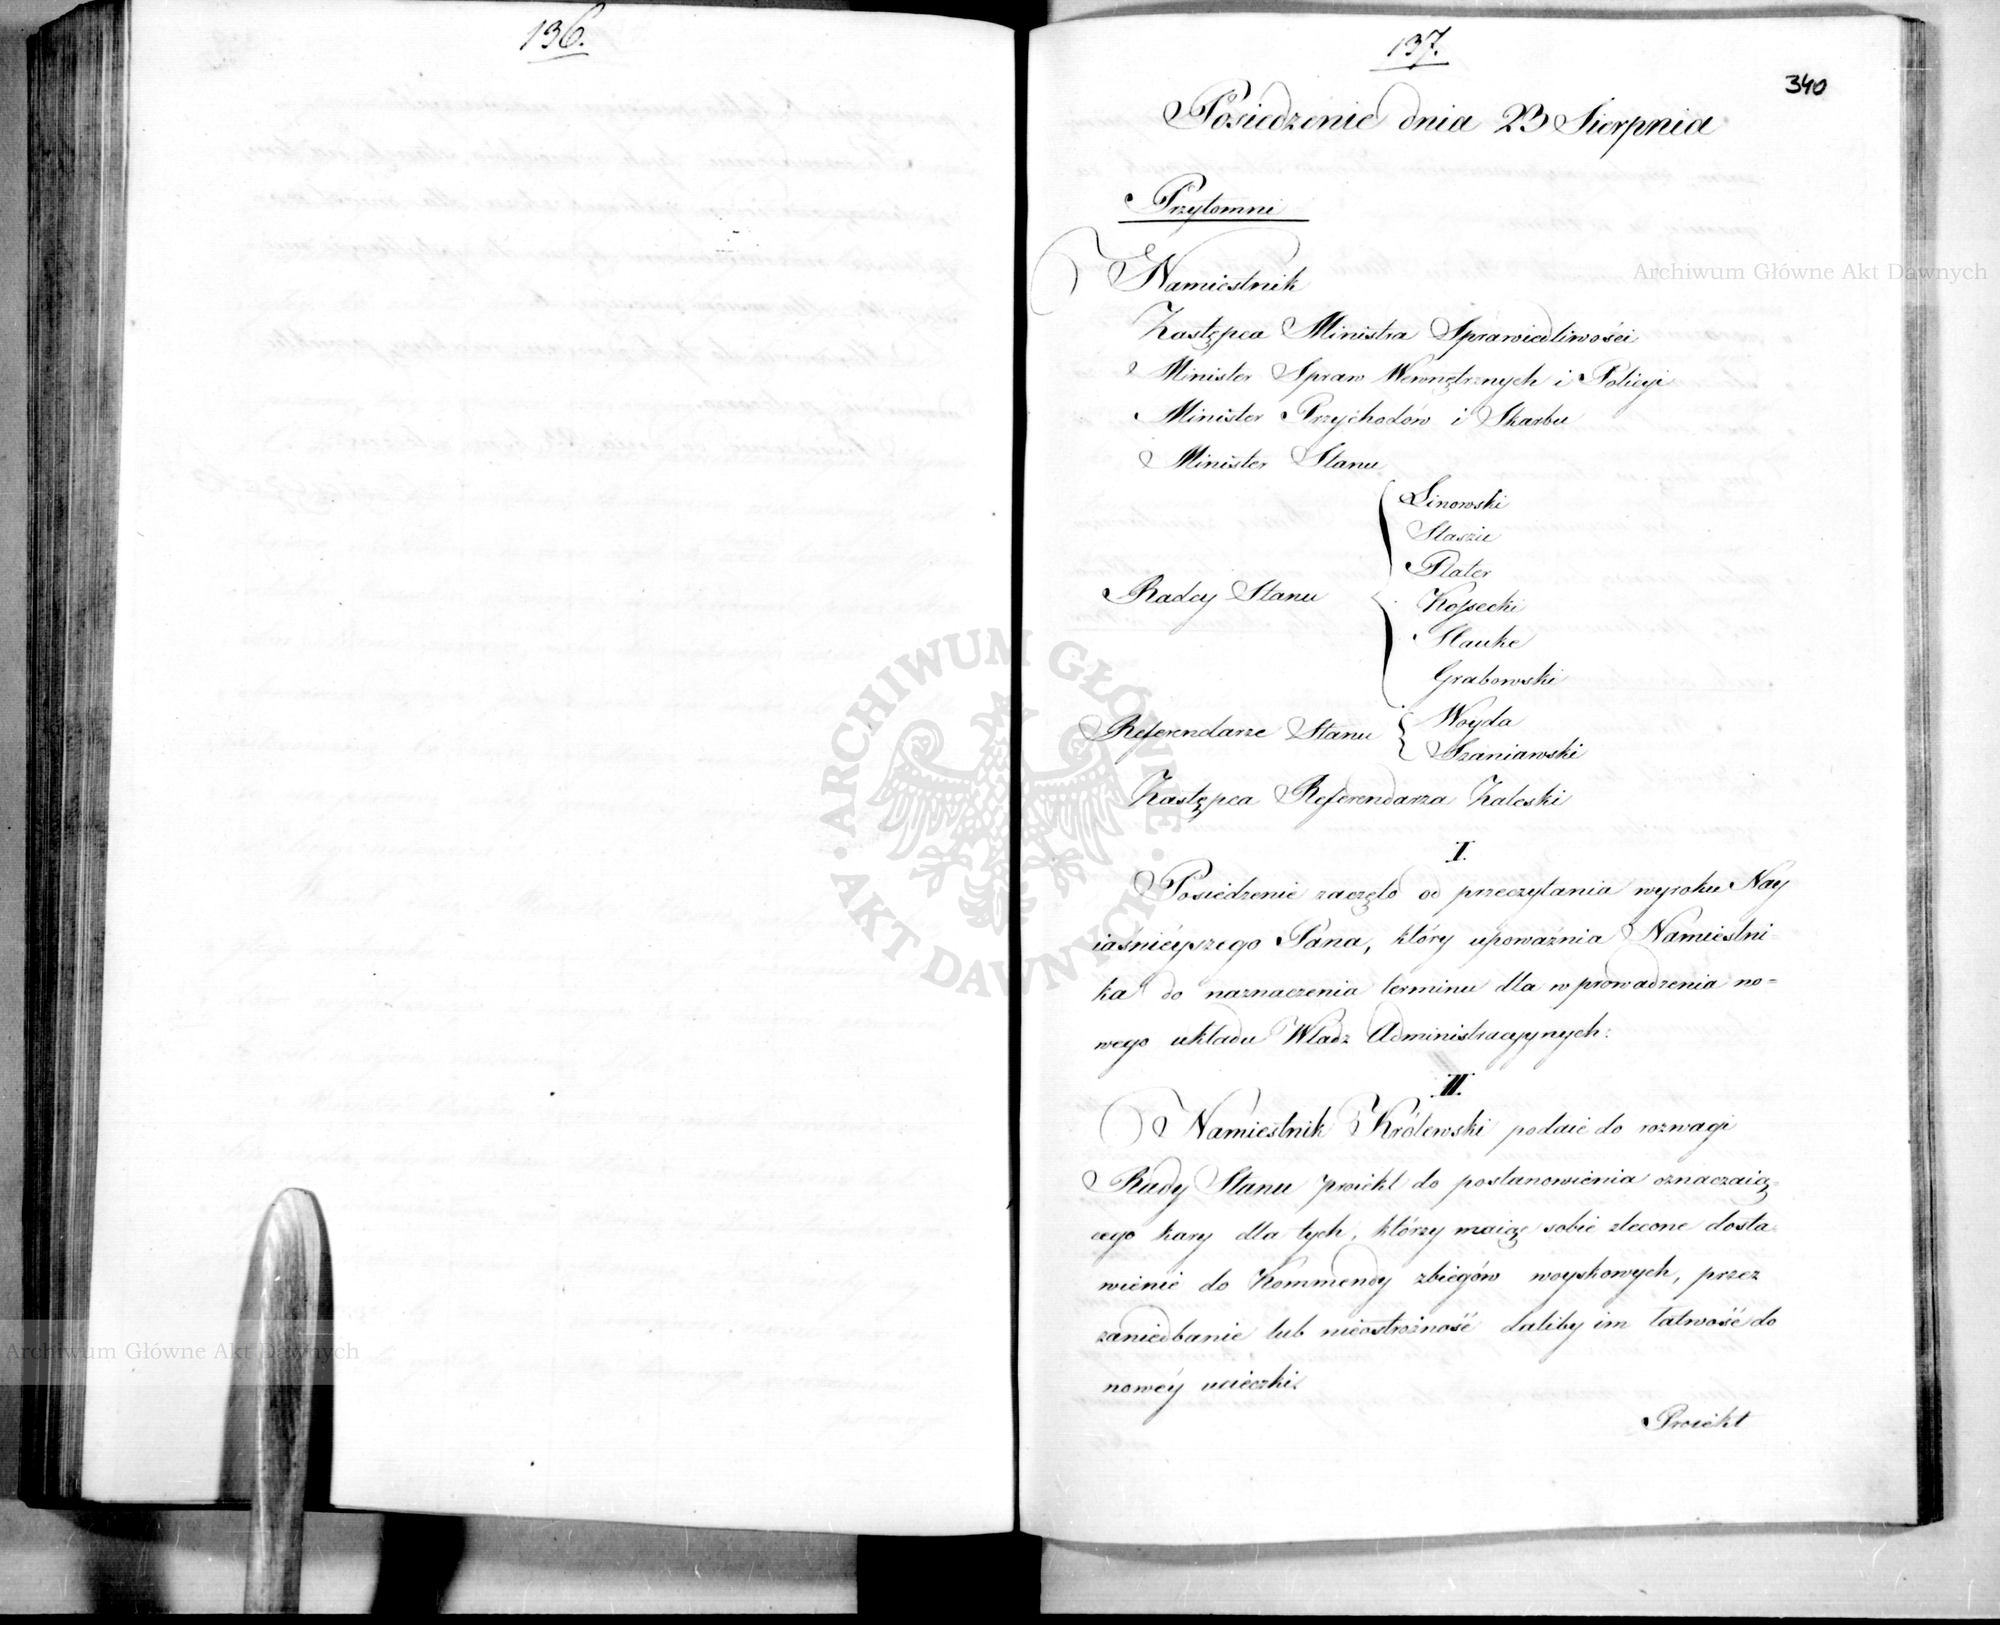 136.
137.
340
Posiedzenie dnia 23 Sierpnia
Przytomni
Namiestnik
Zastępca Ministra Sprawiedliwości
Minister Spraw Wewnętrznych i Policyi
Minister Przychodów i Skarbu
Minister Stanu
Radcy Stanu
Linowski
Staszic
Plater
Kossecki
Hauke
Grabowski
Referendarze Stanu
Woyda
Szaniawski
Zastępca Referendarza Zaleski
I.
Posiedzenie zaczęto od przeczytania wyroku Nay
iaśnieyszego Pana, który upoważnia Namiestni-
ka do naznaczenia terminu dla wprowadzenia no=
wego układu Władz Administracyynych:
II.
Namiestnik Królewski podaie do rozwagi
Rady Stanu proiekt do postanowienia oznaczaią-
cego kary dla tych, którzy maiąc sobie zlecone dosta-
wienie do Kommendy zbiegów woyskowych, przez
zaniedbanie lub nieostrożność daliby im łatwość do
nowéy ucieczki.
Proiekt
Archiwum Główne Akt Dawnych
Archiwum Główne Akt Dawnych
ARCHIWUM GŁÓWNE
AKT DAWNYCH